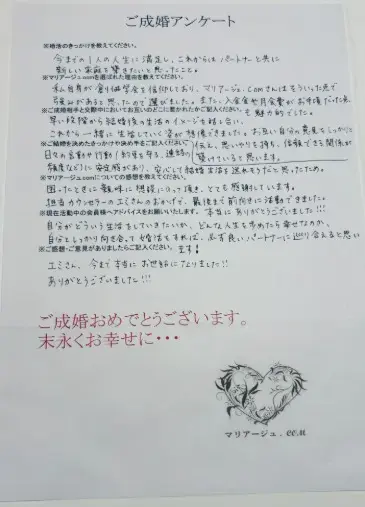 ご成婚アンケート
※婚活のきっかけを教えてください。
今までの1人の人生に満足し、これからはパートナーと共に
新しい家庭を築きたいと思ったこと。
※マリアージュ.comを選ばれた理由を教えてください。
私自身が創価学会を信仰しており、マリアージュ.comさんはそういった点で
強みがあると思ったので選びました。また、入会金や月会費がお手頃だった点
も魅力的でした。
※ご成婚相手と交際中においてお互いのどこに惹かれたかご記入ください。
早い段階から結婚後の生活のイメージも話し合い
これから一緒に生活していく姿が想像できました。お互い自分の意見をしっかりと
伝え、思いやりを持ち、信頼できる関係が
築けていると思います。
※ご結婚を決めたきっかけや決め手をご記入ください。
日々の言動や行動(約束を守る、連絡の
頻度など)に安定感があり、安心して結婚生活を送れそうだと思ったため。
※マリアージュ.comについての感想を教えてください。
困ったときに親味に相談にのって頂き、とても感謝しています。
担当カウンセラーのエミさんのおかげで、最後まで前向きに活動できました。
本当にありがとうございました!!!
※現在活動中の会員様へアドバイスをお願いいたします。
自分がどういう生活をしていきたいか、どんな人生を歩めたら幸せなのか、
自分としっかり向き合って婚活をすれば、必ず良いパートナーに巡り合えると思い
ます!
※ご感想・ご意見がありましたらご記入ください。
エミさん、今まで本当にお世話になりました!!
ありがとうございました!!!
ご成婚おめでとうございます。
末永くお幸せに・・・
マリアージュ.com